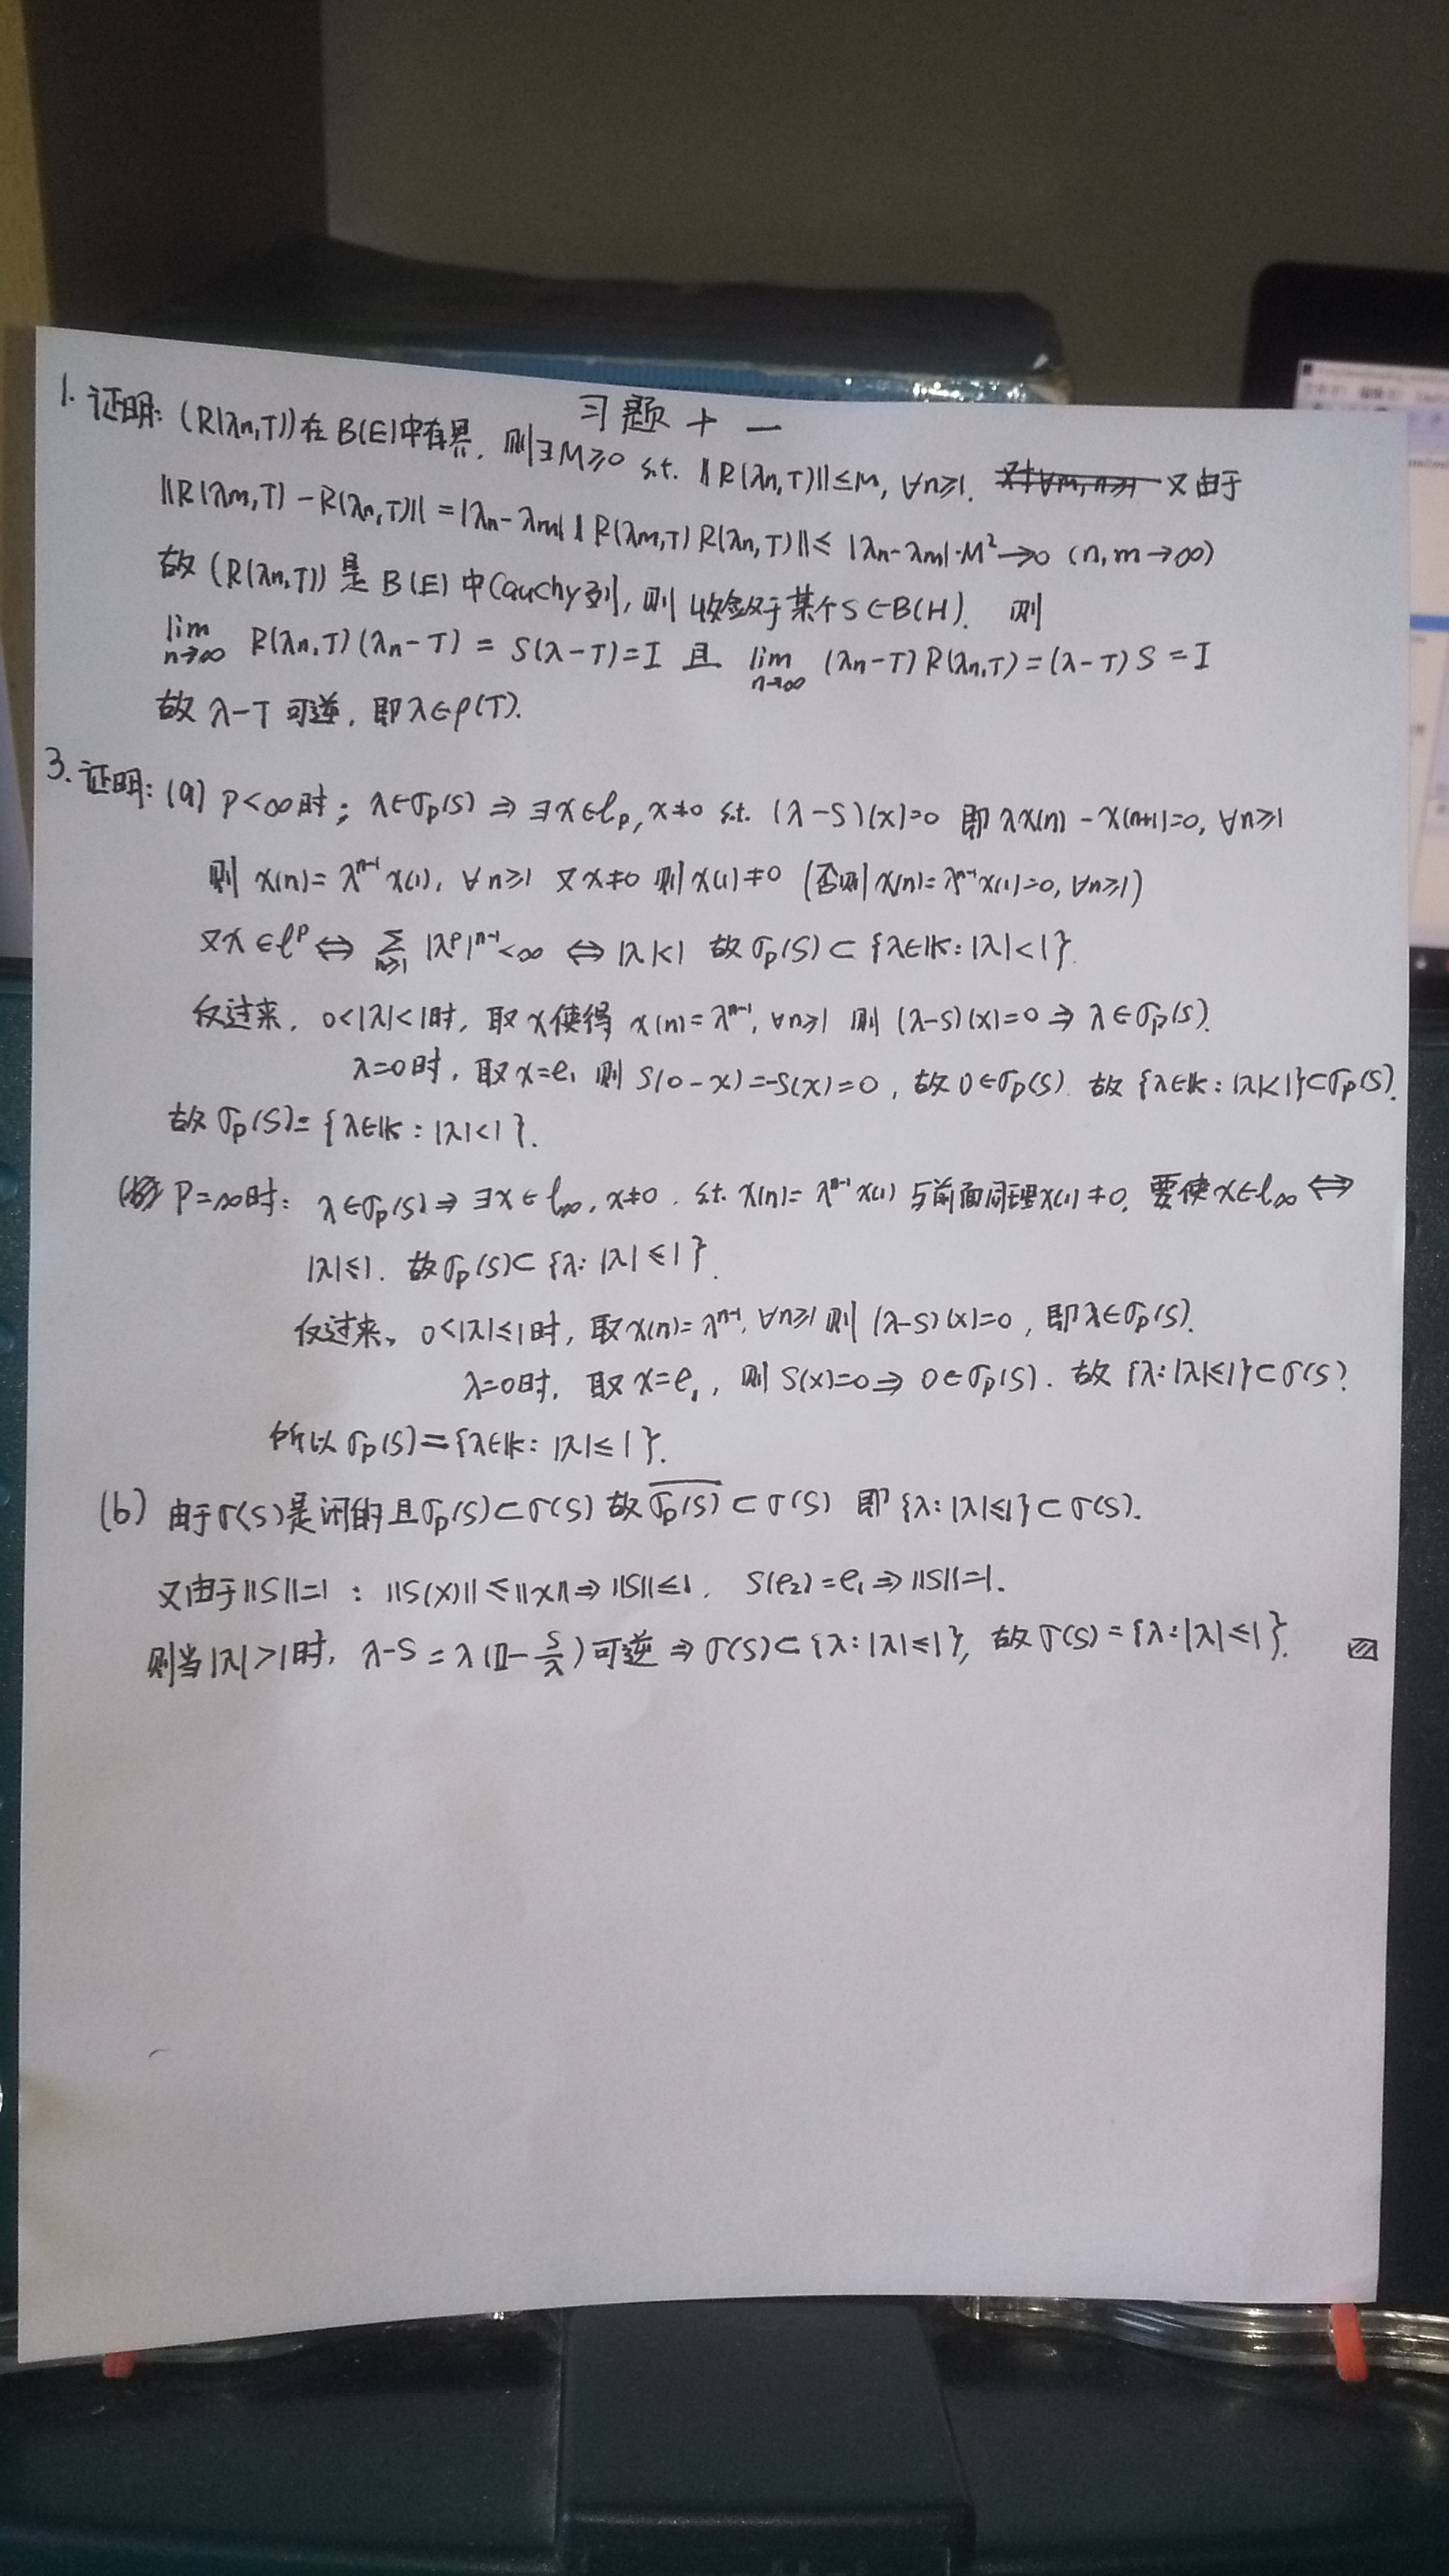 习题十一
1. 证明: (R(λn,T))在B(E)中有界, 则∃M≥0 s.t. ‖R(λn,T)‖≤M, ∀n≥1. 又由于
‖R(λm,T)-R(λn,T)‖=|λn-λm|‖R(λm,T)R(λn,T)‖≤|λn-λm|·M²→0 (n,m→∞)
故(R(λn,T))是B(E)中Cauchy列, 则收敛于某个S∈B(H). 则
lim n→∞ R(λn,T)(λn-T) = S(λ-T)=I 且 lim n→∞ (λn-T)R(λn,T)=(λ-T)S=I
故λ-T可逆, 即λ∈ρ(T).
3. 证明: (a) P<∞时; λ∈σp(S)⇒∃x∈ℓp, x≠0 s.t. (λ-S)(x)=0 即 λx(n)-x(n+1)=0, ∀n≥1
则 x(n)=λⁿ⁻¹x(1), ∀n≥1 又x≠0 则x(1)≠0 (否则x(n)=λⁿ⁻¹x(1)=0, ∀n≥1)
又x∈ℓᵖ⇔ Σ n≥1 |λᵖ|ⁿ⁻¹<∞ ⇔ |λ|<1 故σp(S)⊂{λ∈𝕂:|λ|<1}.
反过来, 0<|λ|<1时, 取x使得 x(n)=λⁿ⁻¹, ∀n≥1 则 (λ-S)(x)=0 ⇒ λ∈σp(S).
λ=0时, 取x=e₁ 则 S(0-x)=-S(x)=0, 故0∈σp(S). 故{λ∈𝕂:|λ|<1}⊂σp(S).
故σp(S)={λ∈𝕂:|λ|<1}.
P=∞时: λ∈σp(S)⇒∃x∈ℓ∞, x≠0. s.t. x(n)=λⁿ⁻¹x(1) 与前面同理x(1)≠0, 要使x∈ℓ∞⇔
|λ|≤1. 故σp(S)⊂{λ:|λ|≤1}.
反过来, 0<|λ|≤1时, 取x(n)=λⁿ⁻¹, ∀n≥1 则 (λ-S)(x)=0, 即λ∈σp(S).
λ=0时, 取x=e₁, 则S(x)=0⇒0∈σp(S). 故{λ:|λ|≤1}⊂σ(S).
所以σp(S)={λ∈𝕂:|λ|≤1}.
(b) 由于σ(S)是闭的且σp(S)⊂σ(S) 故 \overline{σp(S)}⊂σ(S) 即{λ:|λ|≤1}⊂σ(S).
又由于‖S‖=1: ‖S(x)‖≤‖x‖⇒‖S‖≤1. S(e₂)=e₁⇒‖S‖=1.
则当|λ|>1时, λ-S=λ(I-S/λ)可逆⇒σ(S)⊂{λ:|λ|≤1}, 故σ(S)={λ:|λ|≤1}.